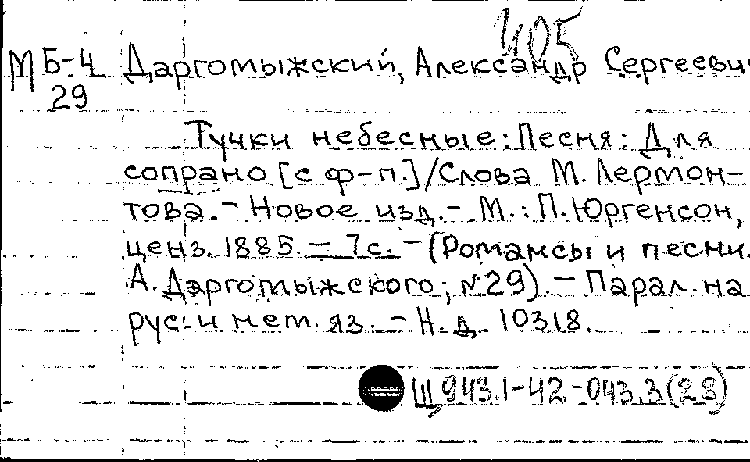 1405
М Б-4 Даргомыжский, Александр Сергеевич
29
Тучки небесные: Песня: Для
сопрано [с ф-п.]/Слова М. Лермон-
това. - Новое изд. - М.: П. Юргенсон,
ценз. 1885. - 7с. - (Романсы и песни
А. Даргомыжского; №29). - Парал. на
рус. и нем. яз. - Н. д. 10318.
Щ943.1-42-043.3(28)